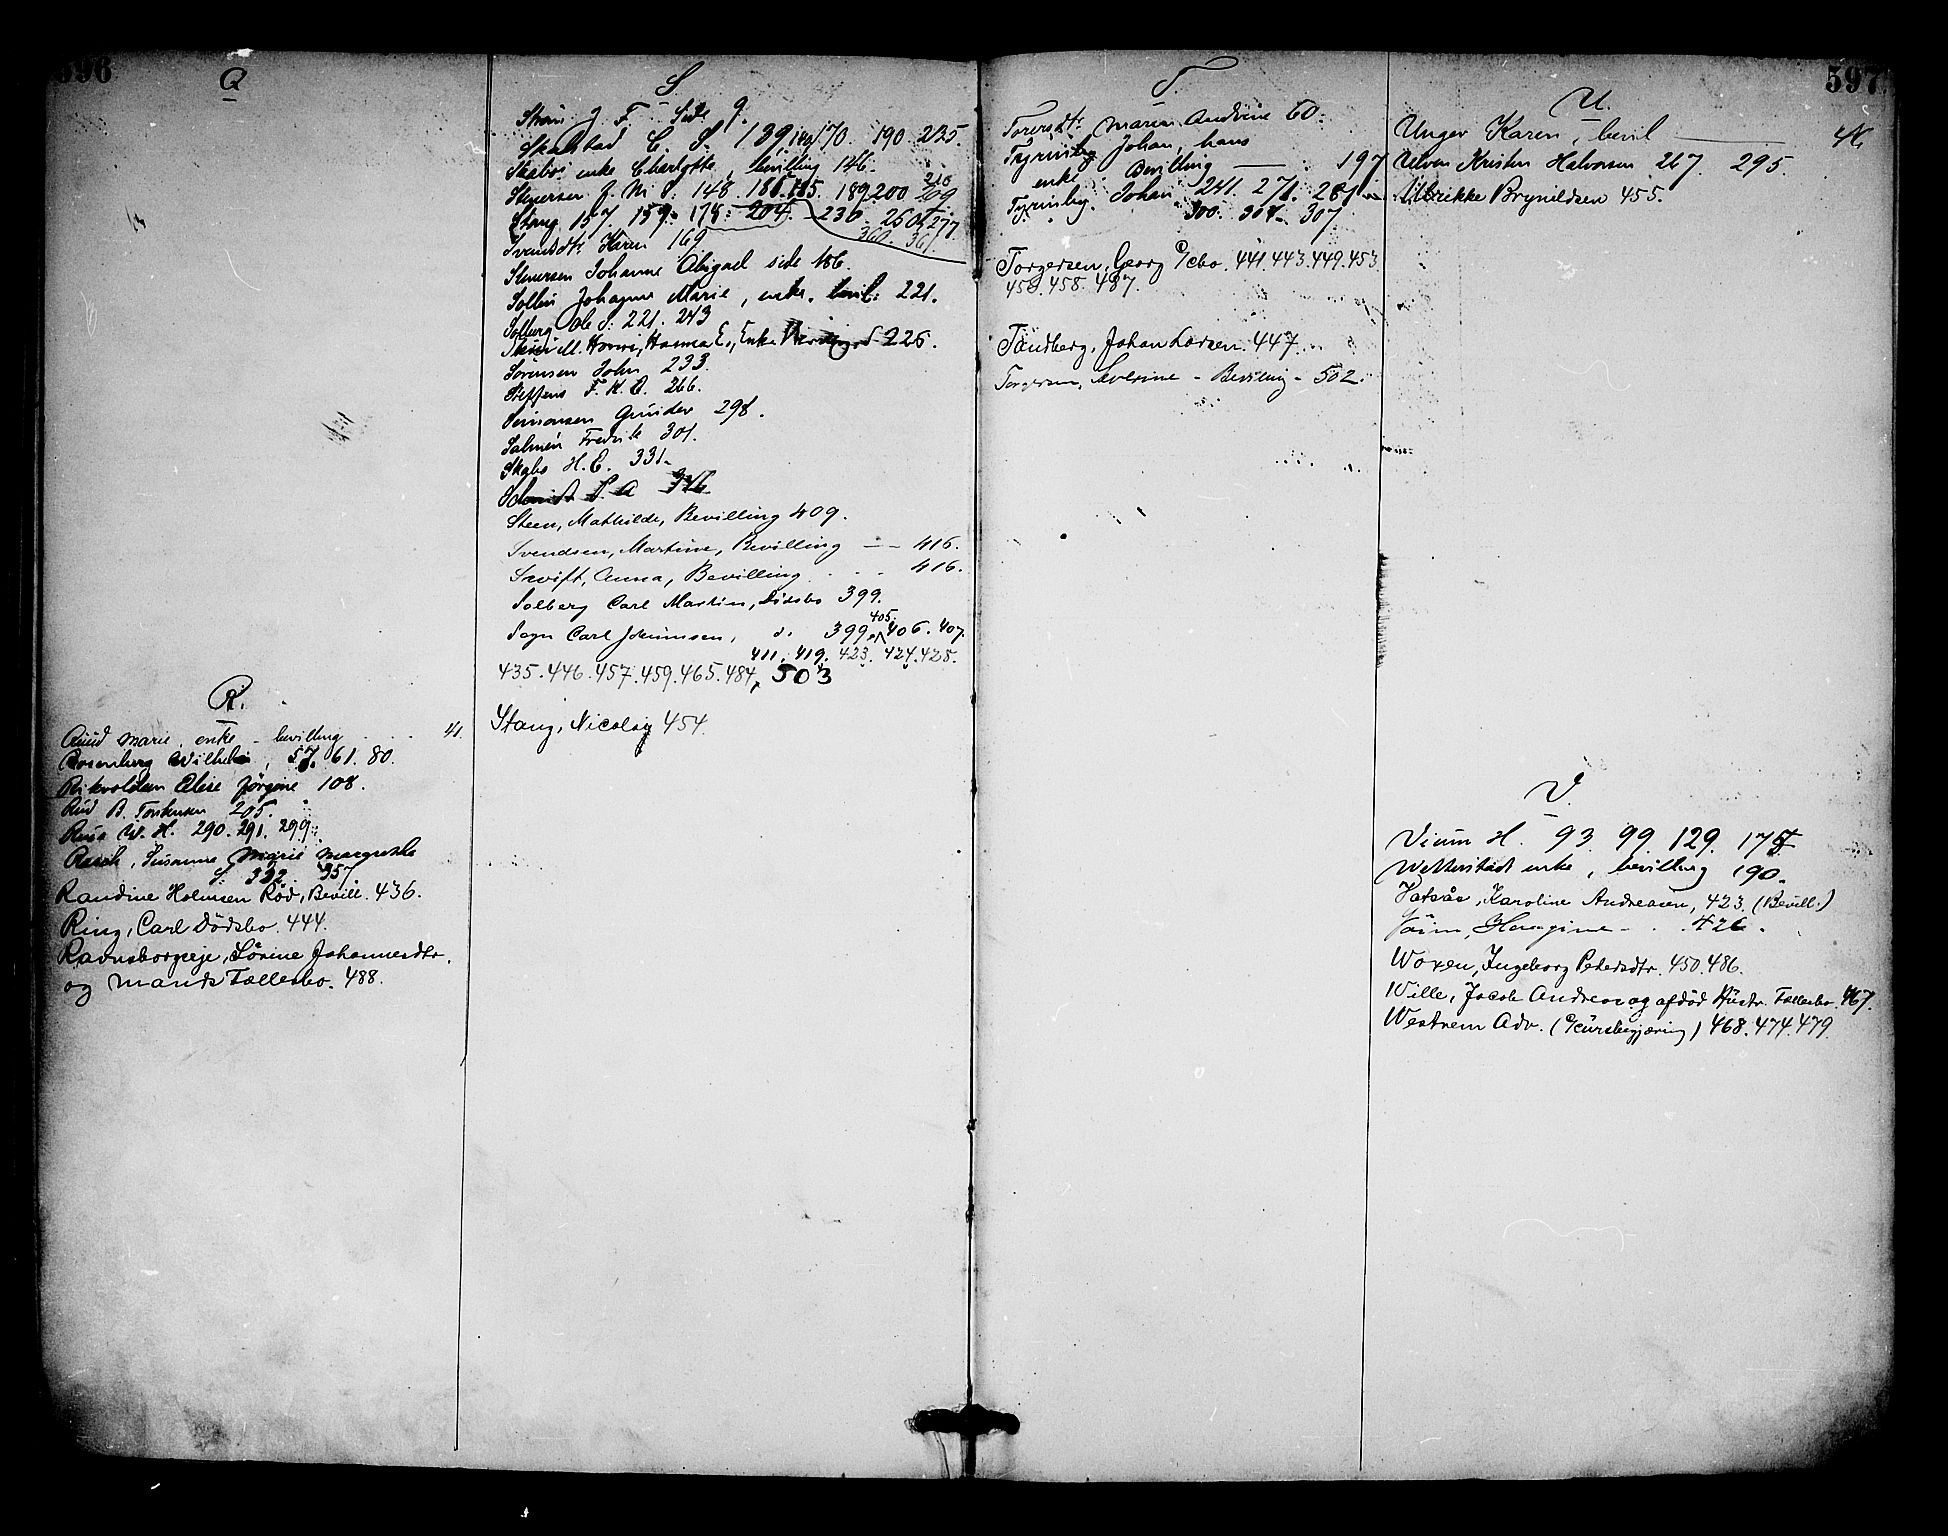 596
Q
R.
Ruud Marie, enke - bevilling 41.
Rosenberg Wilhelm, 57. 61. 80.
Rikvoldsen Elise Jörgine 108.
Rud B. Torstensen 205.
Ruus W. H. 290. 291. 299.
Rasch, Susanne Marie Margrethe
S. 332. 357
Randine Holmsen Röd, Bevill. 436.
Ring, Carl Dödsbo. 444.
Ravnsborgeje, Sörine Johannesdtr.
og Mands Fællesbo. 488.
S
J. F. Side 9.
Skalstad C. S. 139 140 170. 190. 235.
Skabo enke Charlotte, bevilling 146.
Stenersen J. M. S. 148. 185. 189 200 209
210
Stang 157. 159. 178. 204. 230. 260. 277.
360. 361
Svendsdtr. Karen 169
Stenersen Johanne Abigael side 186.
Sollin Johanne Marie, enke. bevil: 221.
Solberg Ole S: 221. 243
Hanna E., Enke 226.
Sorensen John 233.
Steffens F. H. C. 266.
Simonsen Gunder 298.
Salmén Fredrik 301.
Skabo H. C. 331.
Schmidt P. A 346
Steen, Mathilde, Bevilling 409.
Svendsen, Martine, Bevilling — 416.
Swift, Anna, Bevilling . . . 416.
Solberg Carl Martin, Dödsbo 399.
Sogn Carl Johannsen, d. 399. 405. 406. 407.
411. 419. 423. 424. 428.
435. 446. 457. 459. 465. 484, 503
Stang, Nicolay 454.
597
T.
Toversdtr. Maren Andrine 60.
Tyrinby Johan, hans
enke Bevilling — 197
Tyrinby. Johan 241. 271. 281
300. 304. 307
Torgersen, Georg C/cbo. 441. 443. 449. 453.
456. 458. 487.
Tandberg, Johan Larsen. 447.
Torgersen, Severine - Bevilling - 502.
U.
Unger Karen, bevil — 41
Ulven Kristen Halvorsen 267. 295.
Ulrikke Brynildsen 455.
V.
Vium H. 93 99. 129. 175
Wetterstadt enke, bevilling 190.
Vatsås, Karoline Andreasen, 423. (Bevill.)
Vaim, Hangine - . . 426.
Woxen, Ingeborg Pedersdtr. 450. 486.
Wille, Jacob Andreas og afdöd Hustr. Fællesbo. 467.
Westrem Adv. (Kursbegjæring) 468. 474. 479.